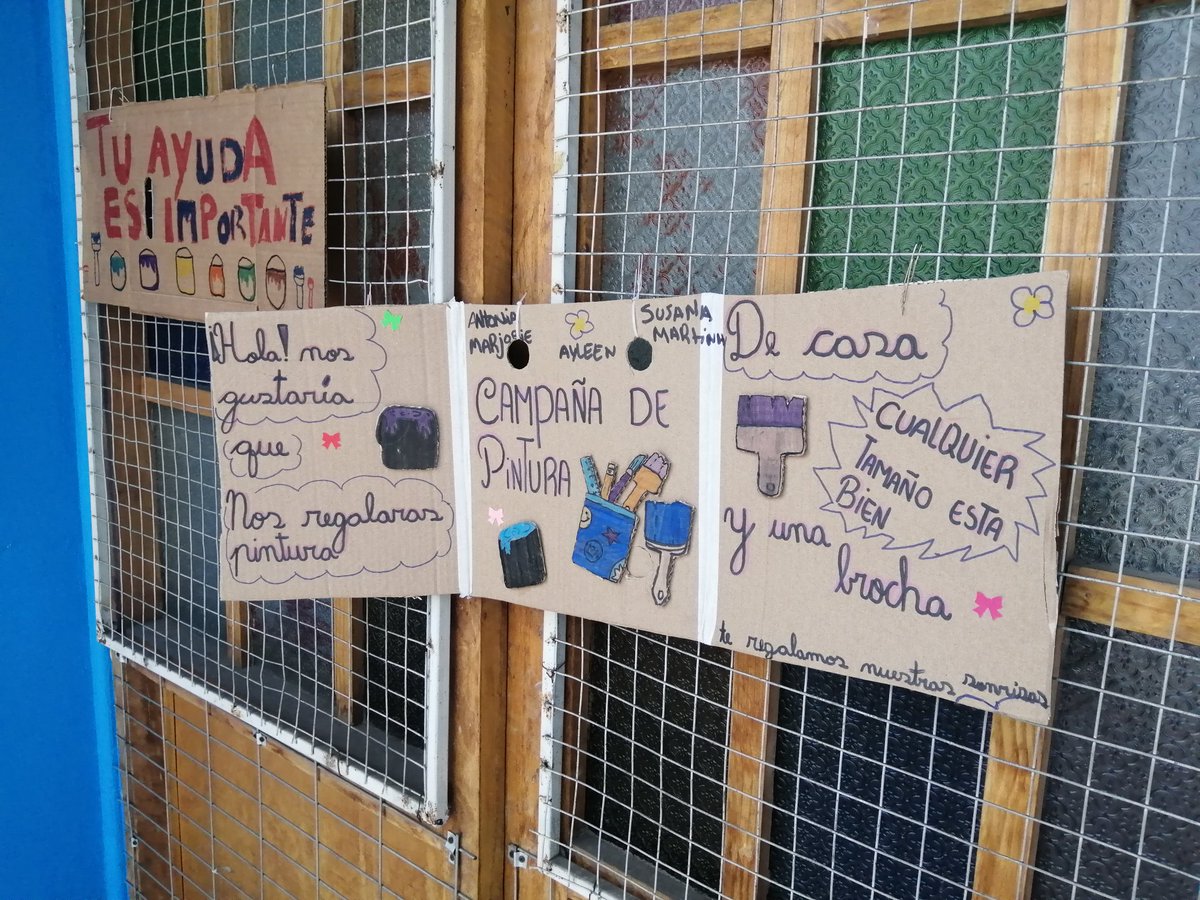 TU AYUDA
ES IMPORTANTE
¡Hola! nos
gustaría
que
Nos regalaras
pintura
ANTONIA
MARJORIE
AYLEEN
SUSANA
MARTINA
CAMPAÑA DE
PINTURA
De casa
CUALQUIER
TAMAÑO ESTA
BIEN
y una
brocha
te regalamos nuestras sonrisas